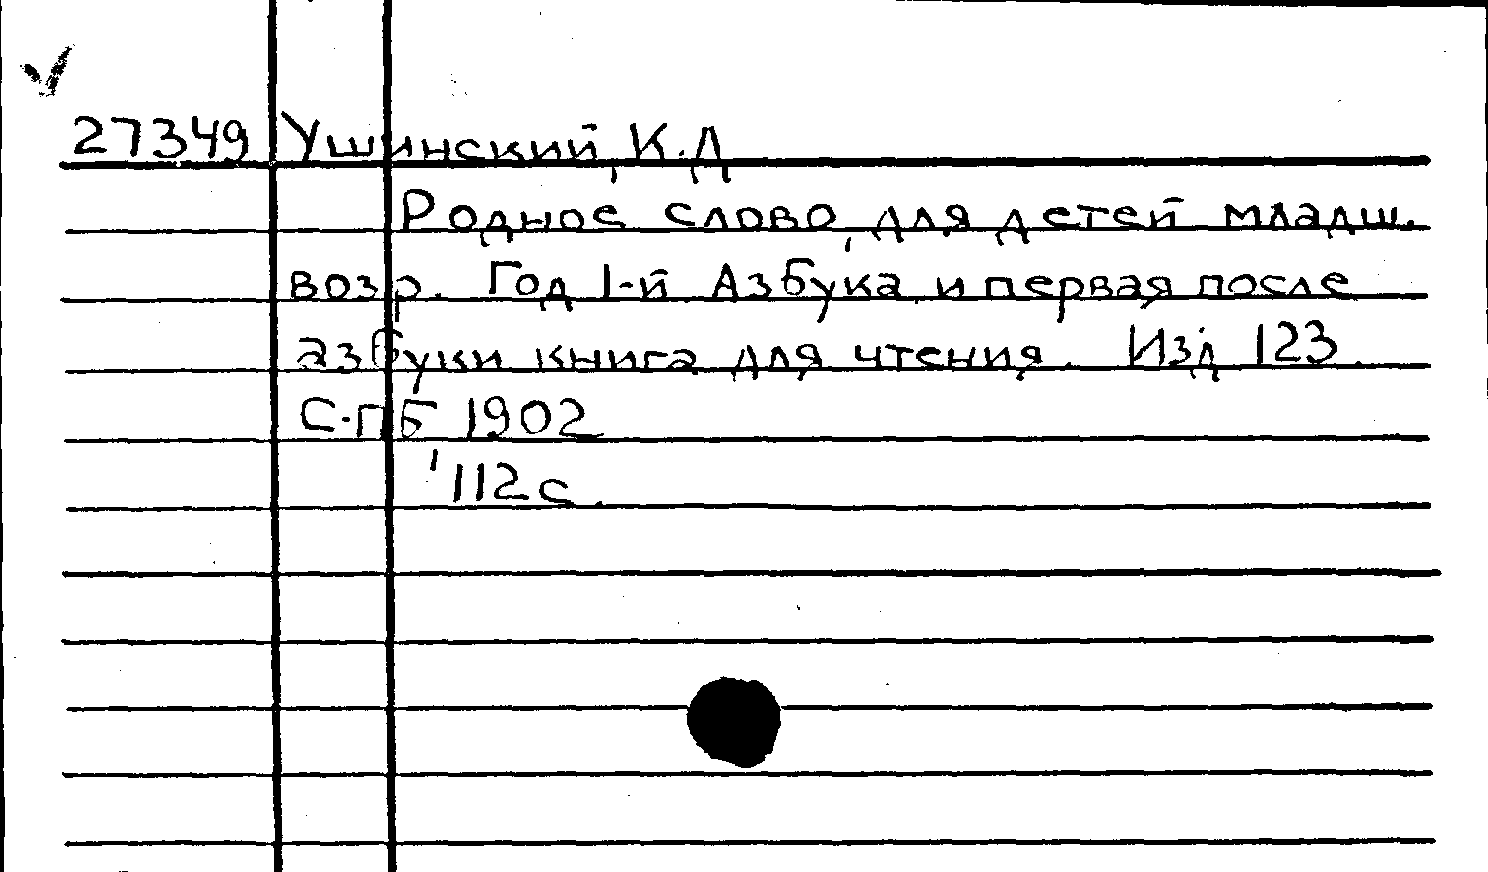 27349 Ушинский, К.Д
Родное слово, для детей младш.
возр. Год 1-й Азбука и первая после
азбуки книга для чтения. Изд 123.
С-ПБ 1902
112 с.